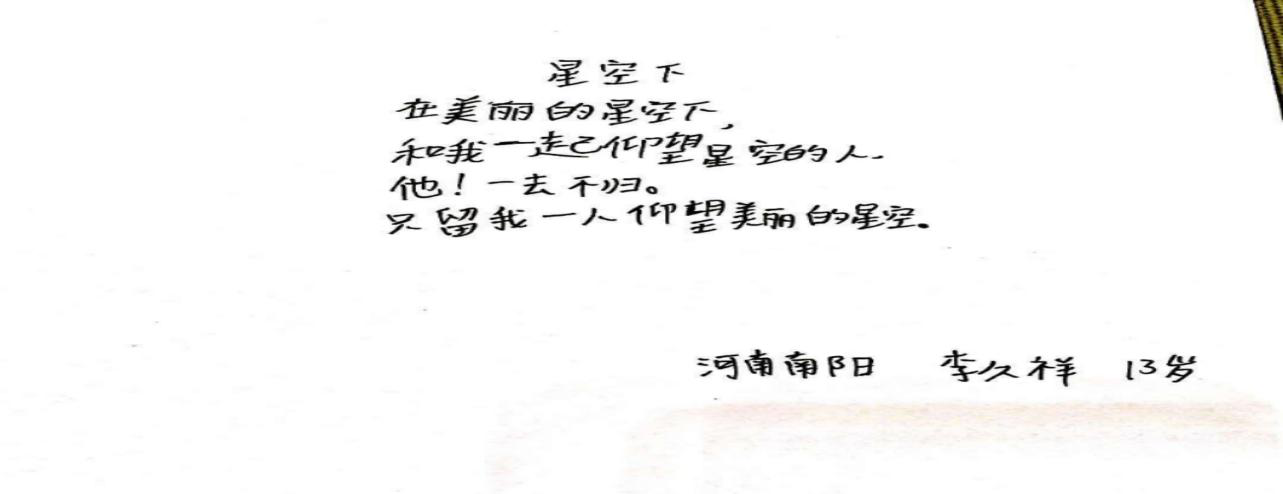 星空下
在美丽的星空下,
和我一起仰望星空的人.
他！一去不归。
只留我一人仰望美丽的星空。
河南南阳 李久祥 13岁